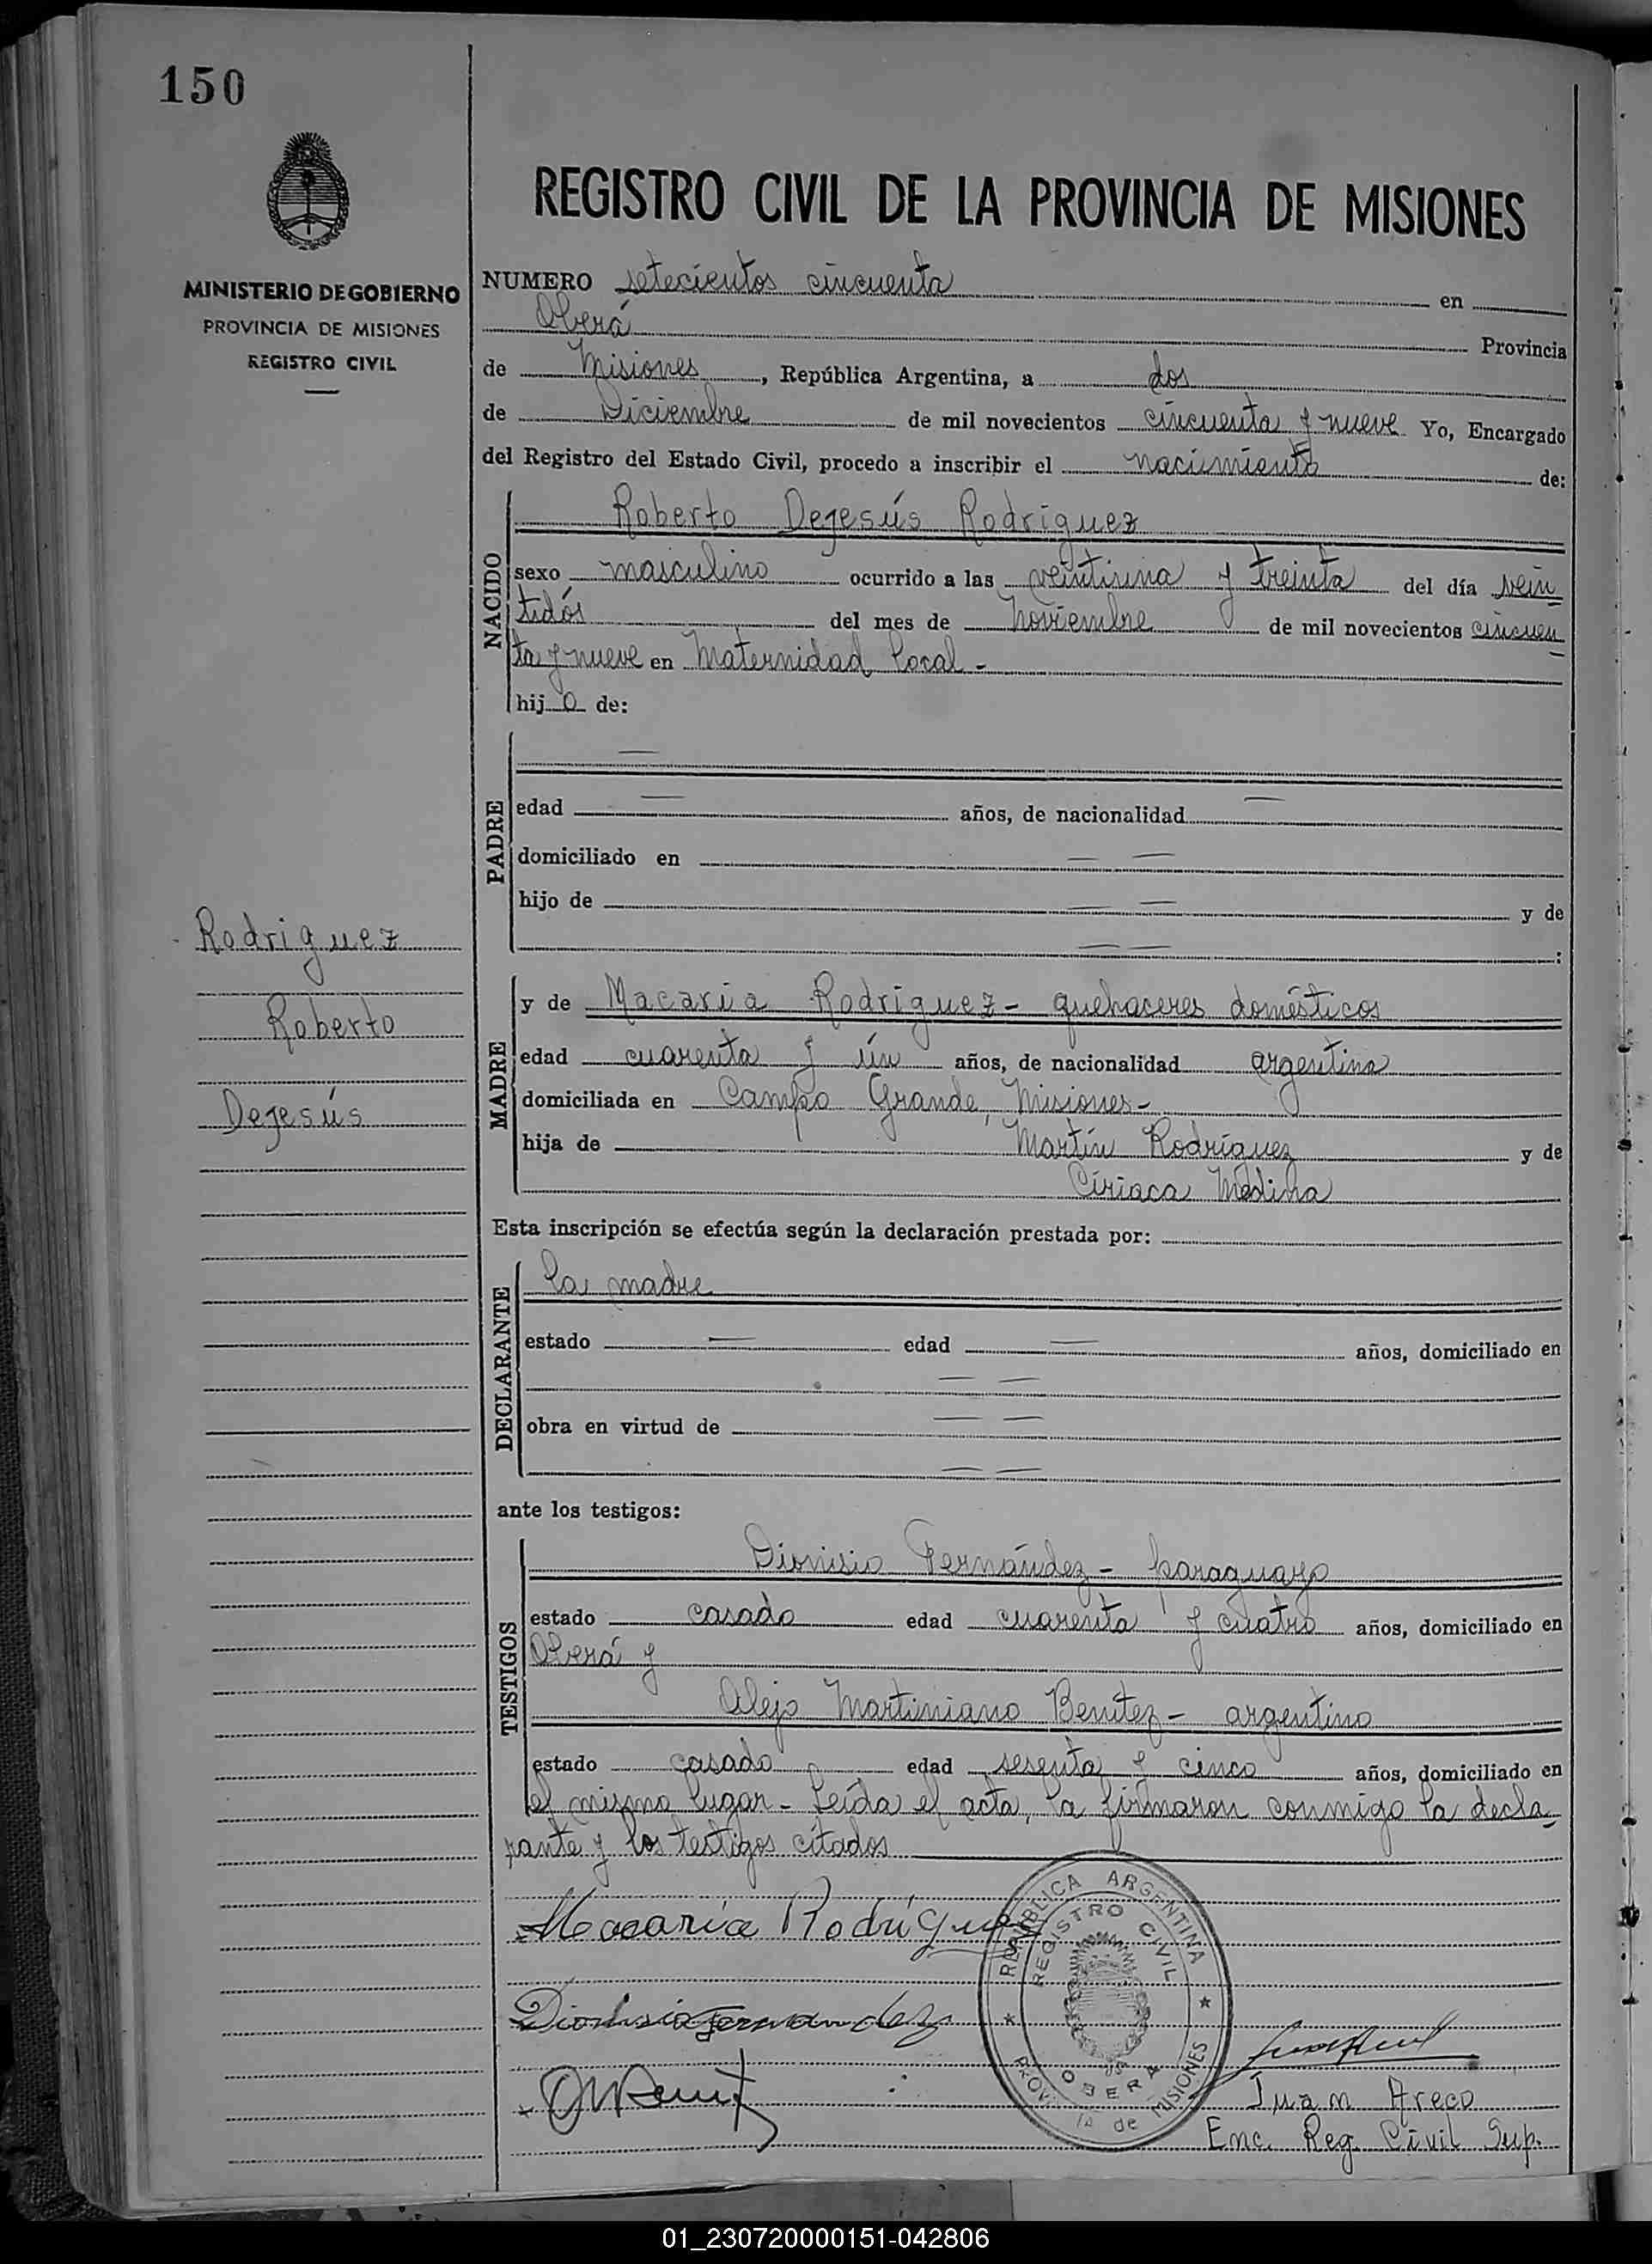 150
MINISTERIO DE GOBIERNO
PROVINCIA DE MISIONES
REGISTRO CIVIL
REGISTRO CIVIL DE LA PROVINCIA DE MISIONES
NUMERO setecientos cincuenta en
Oberá Provincia
de Misiones, República Argentina, a dos
de Diciembre de mil novecientos cincuenta y nueve Yo, Encargado
del Registro del Estado Civil, procedo a inscribir el nacimiento de:
NACIDO
Roberto Dejesús Rodriguez
sexo masculino ocurrido a las veintiuna y treinta del día vein
tidós del mes de Noviembre de mil novecientos cincuen
ta y nueve en Maternidad Local -
hijo de:
PADRE
—
edad — años, de nacionalidad —
domiciliado en — —
hijo de — — y de
— — :
Rodriguez
Roberto
Dejesús
MADRE
y de Macaria Rodriguez - quehaceres domésticos
edad cuarenta y ún años, de nacionalidad argentina
domiciliada en Campo Grande, Misiones -
hija de Martín Rodríguez y de
Ciriaca Medina
Esta inscripción se efectúa según la declaración prestada por:
DECLARANTE
la madre
estado — edad — años, domiciliado en
— —
obra en virtud de — —
— —
ante los testigos:
TESTIGOS
Dionisio Fernández - paraguayo
estado casado edad cuarenta y cuatro años, domiciliado en
Oberá y
Alejo Martiniano Benítez - argentino
estado casado edad sesenta y cinco años, domiciliado en
el mismo lugar - Leída el acta, la firmaron conmigo la decla
rante y los testigos citados
Macaria Rodríguez
Dionisio Fernandez
REPUBLICA ARGENTINA
REGISTRO CIVIL
OBERA
PROVINCIA de MISIONES
Juan Areco
Enc. Reg. Civil Sup.
01_230720000151-042806